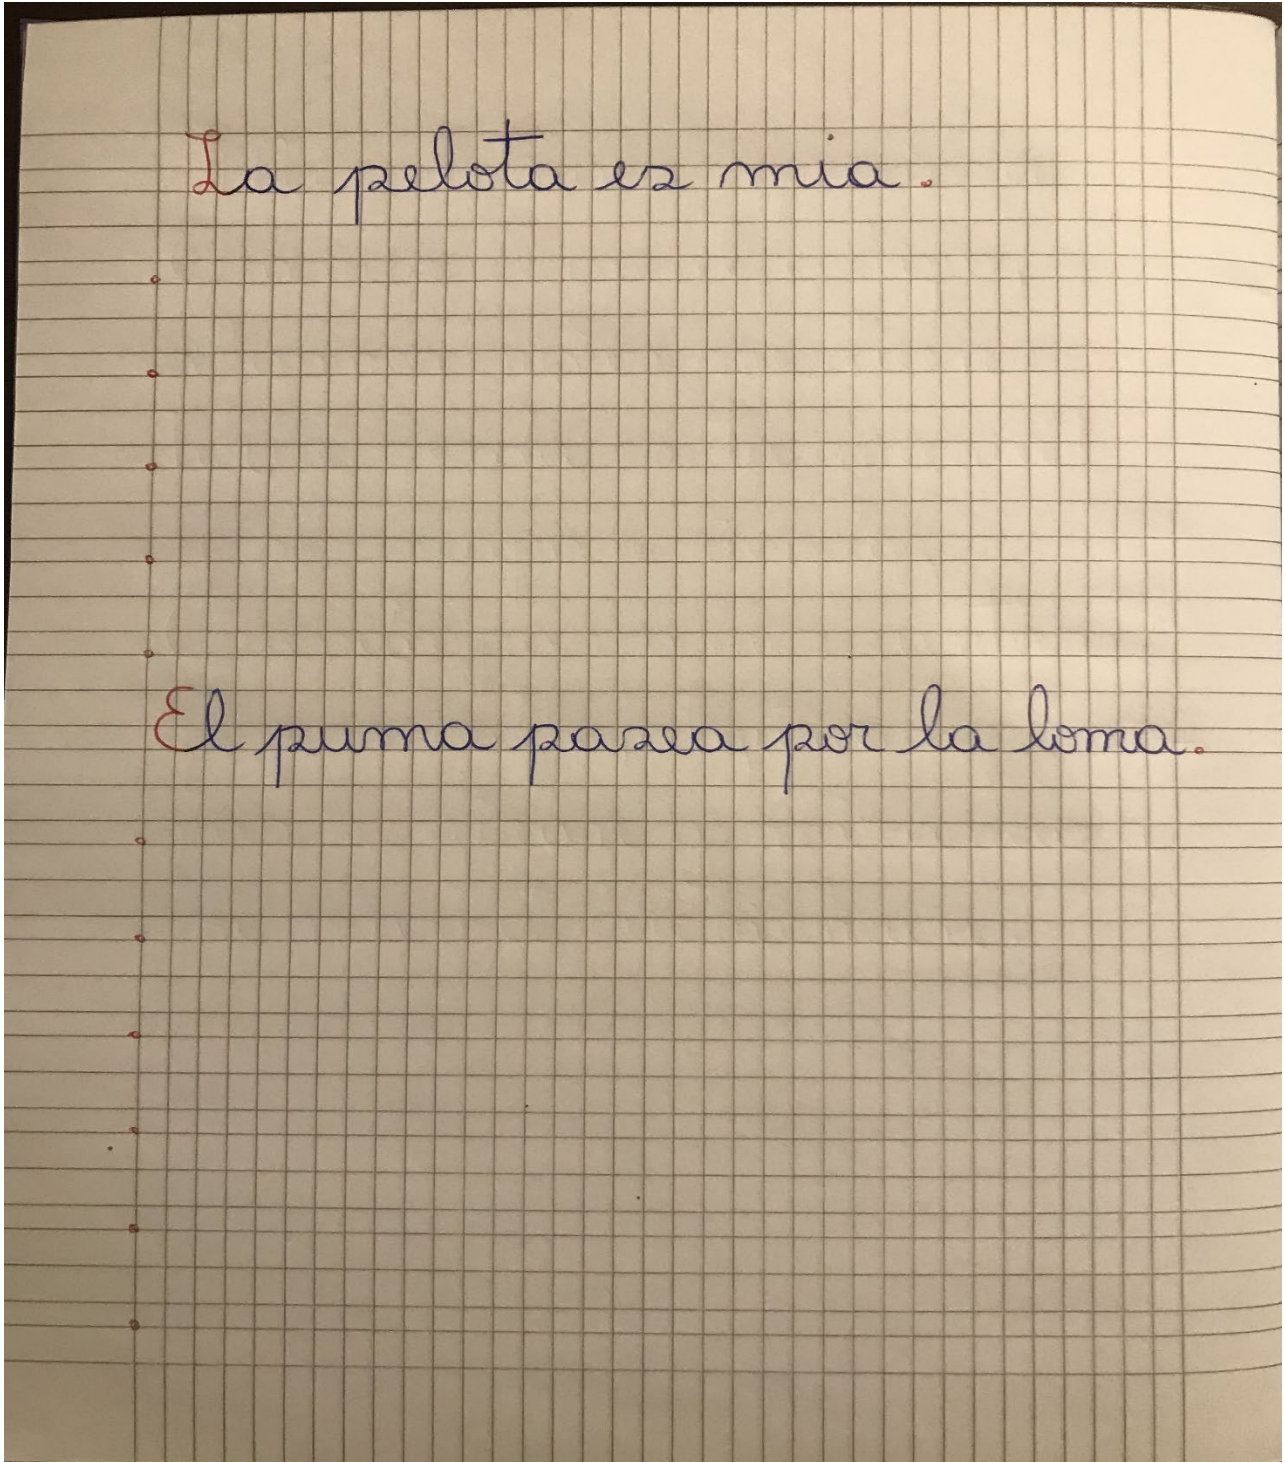 La pelota es mia.
El puma pasea por la loma.